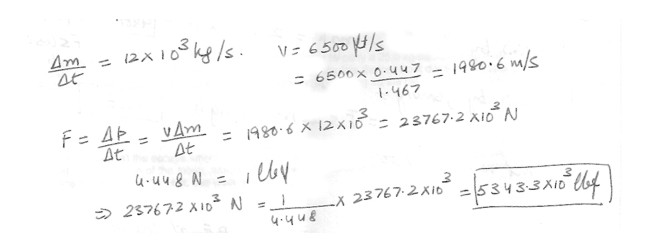 Δm/Δt = 12×10³ kg/s. V = 6500 ft/s
= 6500 × 0.447/1.467 = 1980.6 m/s
F = Δp/Δt = vΔm/Δt = 1980.6 × 12×10³ = 23767.2 ×10³ N
4.448 N = 1 lbf
⇒ 23767.2 ×10³ N = 1/4.448 × 23767.2×10³ = 5343.3×10³ lbf